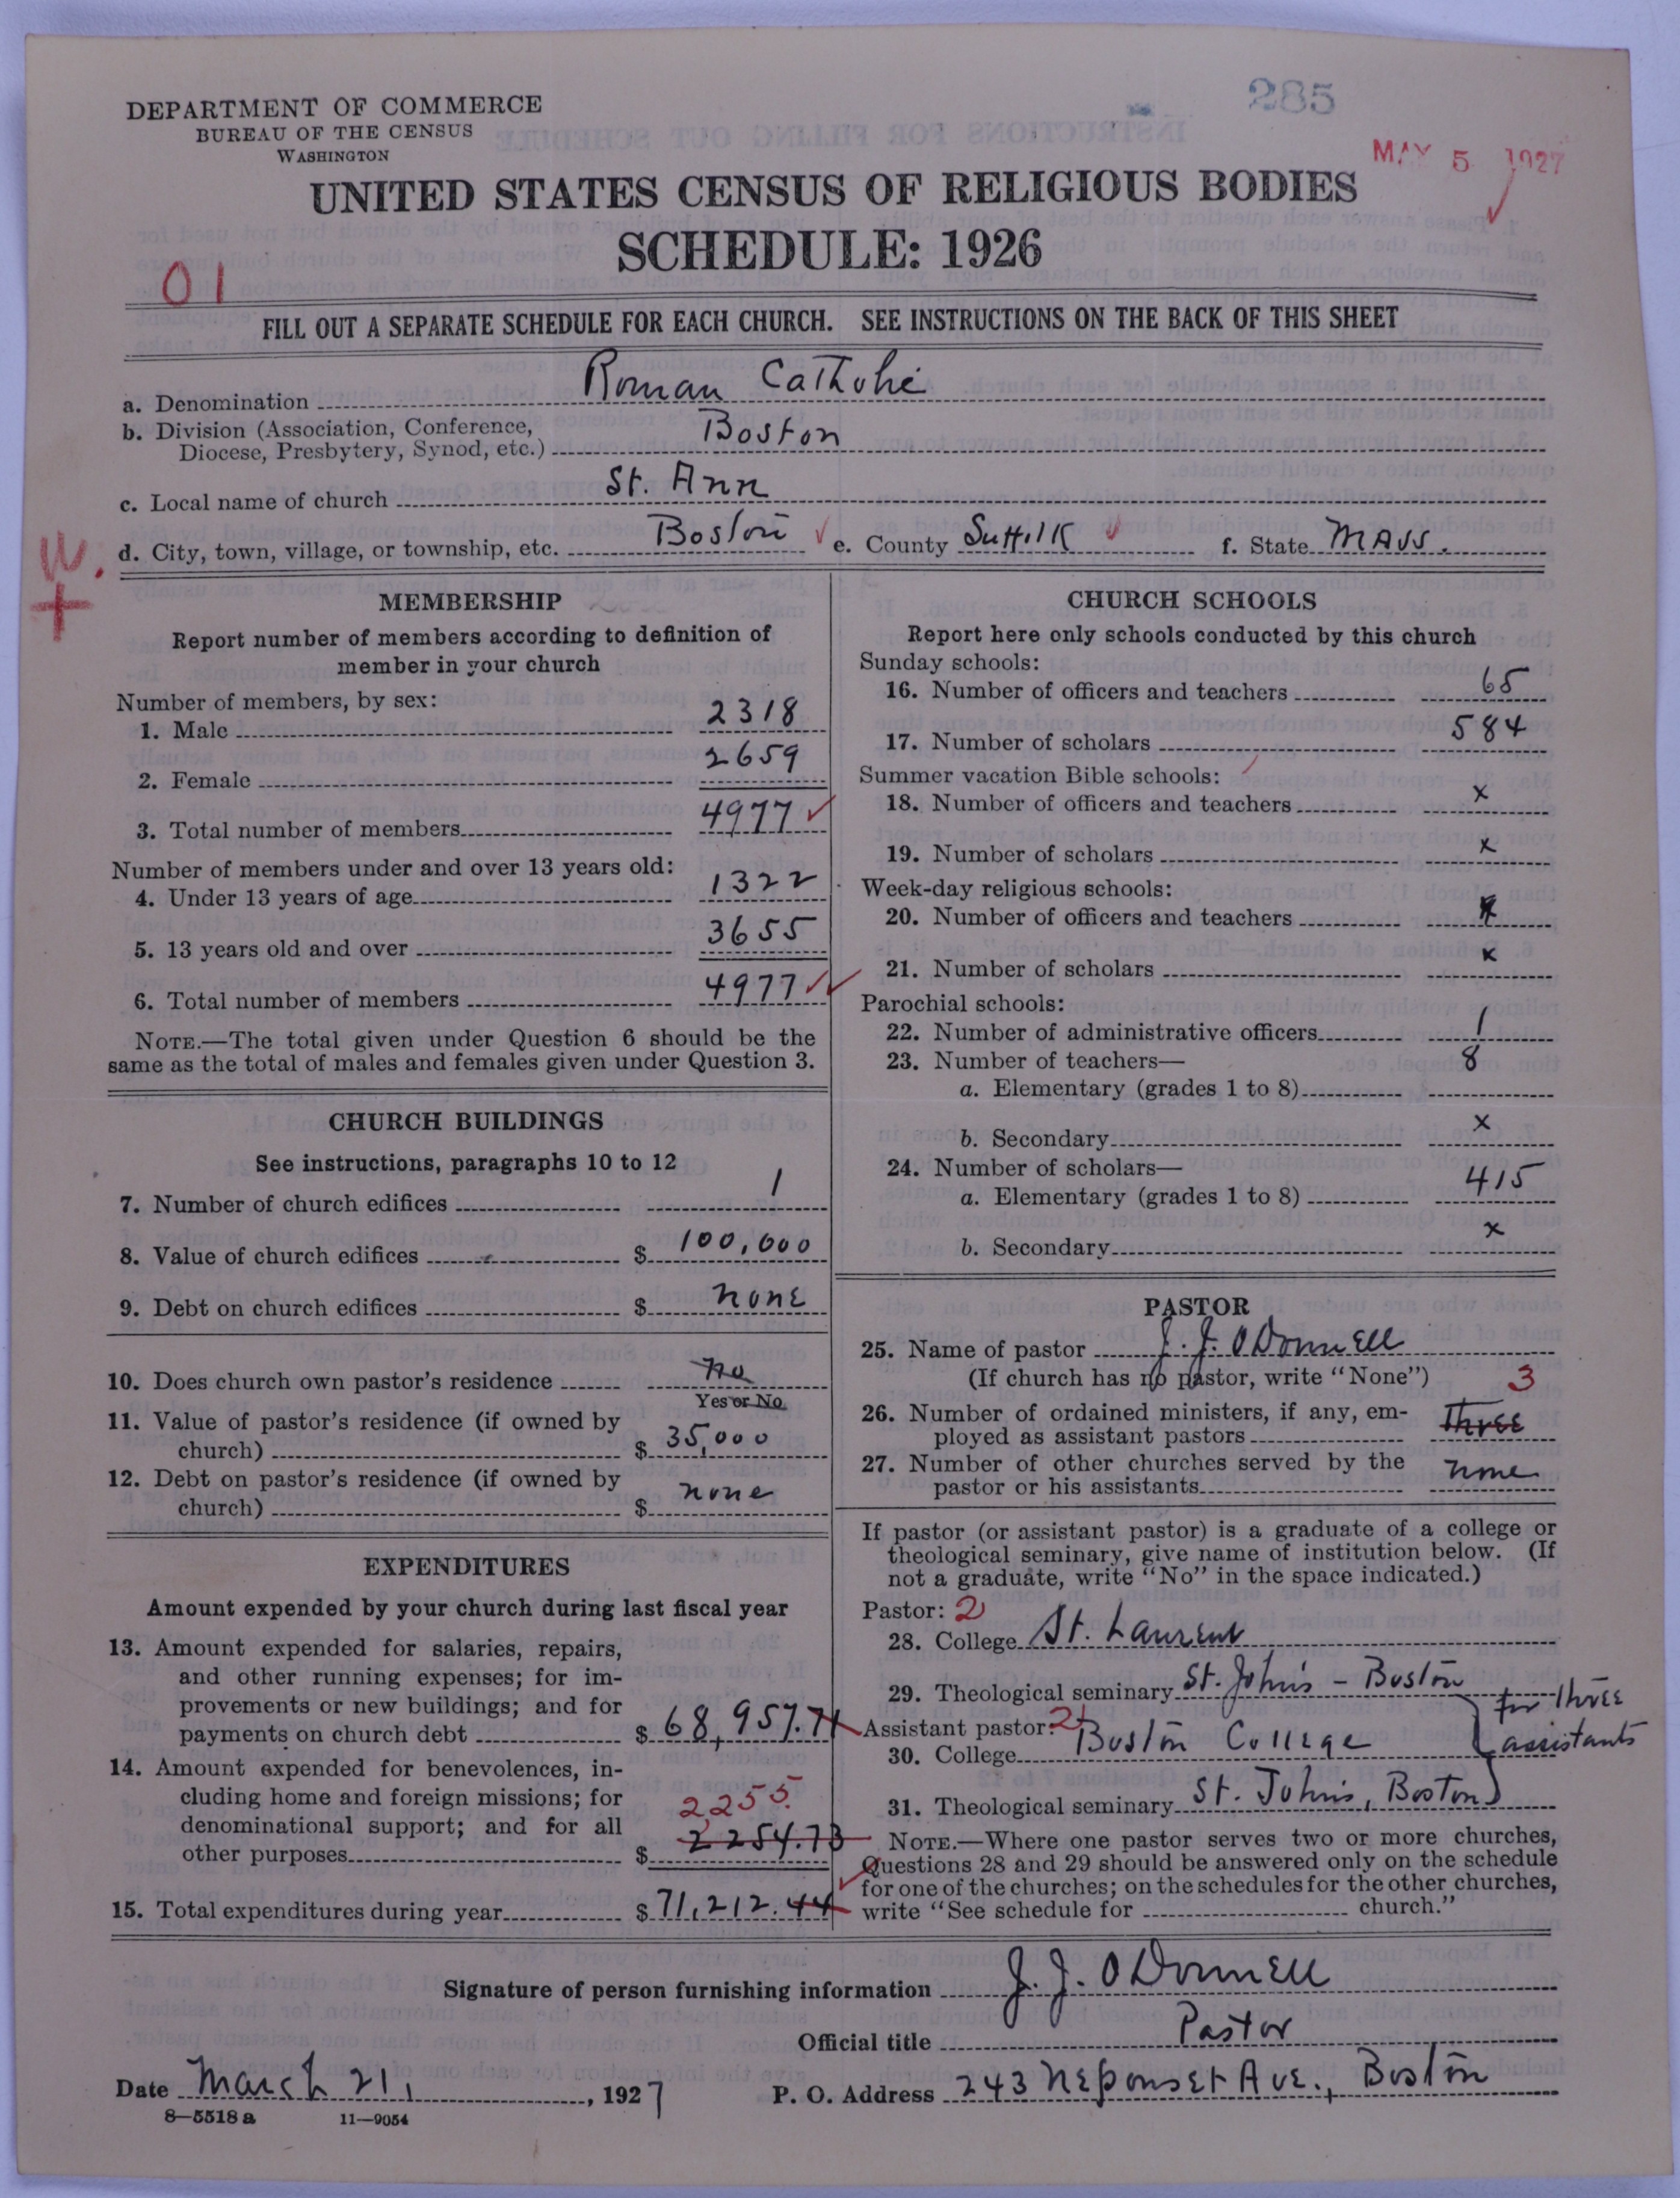 285
DEPARTMENT OF COMMERCE
BUREAU OF THE CENSUS
WASHINGTON
MAY 5 1927
UNITED STATES CENSUS OF RELIGIOUS BODIES
SCHEDULE: 1926
01
FILL OUT A SEPARATE SCHEDULE FOR EACH CHURCH. SEE INSTRUCTIONS ON THE BACK OF THIS SHEET
a. Denomination Roman Catholic
b. Division (Association, Conference, Diocese, Presbytery, Synod, etc.) Boston
c. Local name of church St. Ann
d. City, town, village, or township, etc. Boston e. County Suffolk f. State Mass.
W.
+
MEMBERSHIP
Report number of members according to definition of
member in your church
Number of members, by sex:
1. Male 2318
2. Female 2659
3. Total number of members 4977
Number of members under and over 13 years old:
4. Under 13 years of age 1322
5. 13 years old and over 3655
6. Total number of members 4977
NOTE.—The total given under Question 6 should be the
same as the total of males and females given under Question 3.
CHURCH BUILDINGS
See instructions, paragraphs 10 to 12
7. Number of church edifices 1
8. Value of church edifices $ 100,000
9. Debt on church edifices $ none
10. Does church own pastor's residence no
Yes or No
11. Value of pastor's residence (if owned by
church) $ 35,000
12. Debt on pastor's residence (if owned by
church) $ none
EXPENDITURES
Amount expended by your church during last fiscal year
13. Amount expended for salaries, repairs,
and other running expenses; for im-
provements or new buildings; and for
payments on church debt $ 68,957.71
14. Amount expended for benevolences, in-
cluding home and foreign missions; for
denominational support; and for all
other purposes $ 2254.73
2255.
15. Total expenditures during year $ 71,212.44
CHURCH SCHOOLS
Report here only schools conducted by this church
Sunday schools:
16. Number of officers and teachers 65
17. Number of scholars 584
Summer vacation Bible schools:
18. Number of officers and teachers x
19. Number of scholars x
Week-day religious schools:
20. Number of officers and teachers x
21. Number of scholars x
Parochial schools:
22. Number of administrative officers 1
23. Number of teachers—
a. Elementary (grades 1 to 8) 8
b. Secondary x
24. Number of scholars—
a. Elementary (grades 1 to 8) 415
b. Secondary x
PASTOR
25. Name of pastor J. J. O Donnell
(If church has no pastor, write "None") 3
26. Number of ordained ministers, if any, em-
ployed as assistant pastors Three
27. Number of other churches served by the
pastor or his assistants none
If pastor (or assistant pastor) is a graduate of a college or
theological seminary, give name of institution below. (If
not a graduate, write "No" in the space indicated.)
Pastor: 2
28. College St. Laurent
29. Theological seminary St. John's - Boston
Assistant pastor: 2
30. College Boston College
for three
assistants
31. Theological seminary St. Johns, Boston
NOTE.—Where one pastor serves two or more churches,
Questions 28 and 29 should be answered only on the schedule
for one of the churches; on the schedules for the other churches,
write "See schedule for church."
Signature of person furnishing information J. J. O Donnell
Official title Pastor
Date March 21, , 1927 P. O. Address 243 Neponset Ave., Boston
8—5518 a 11—9054